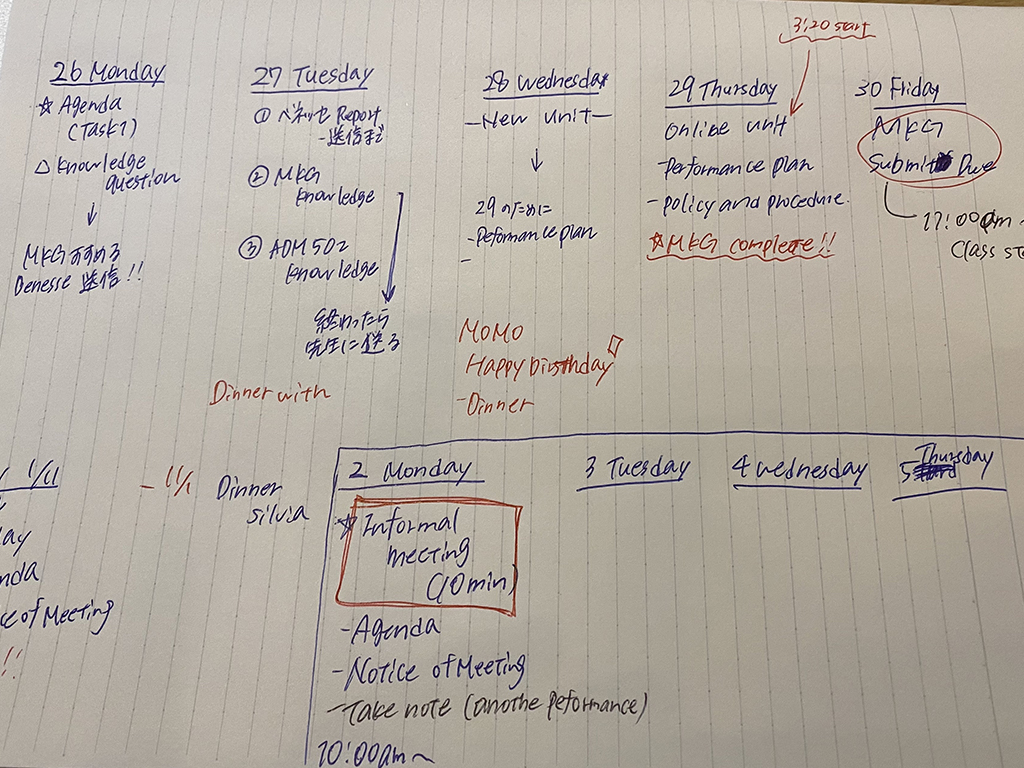 3:20 start
26 Monday
☆ Agenda
(Task1)
△ Knowledge
question
↓
MKGすすめる
Denesse 送信!!
27 Tuesday
① ベネッセ Report
-送信まで
② MKG
knowledge
③ ADM502
knowledge
終わったら
先生に送る
Dinner with
28 Wednesday
-New unit-
↓
29のために
-Peformance plan
-
MOMO
Happy birthday
-Dinner
29 Thursday
Online unit
-Performance plan
-policy and procedure.
☆MKG complete!!
30 Friday
MKG
Submit Due
11:00am~
Class st
1/11
ay
nda
ce of Meeting
!!
- 11/1
Dinner
silvia
2 Monday
☆ Informal
meeting
(10min)
-Agenda
-Notice of Meeting
-Take note (anothe peformance)
10:00am~
3 Tuesday
4 wednesday
5 Thursday